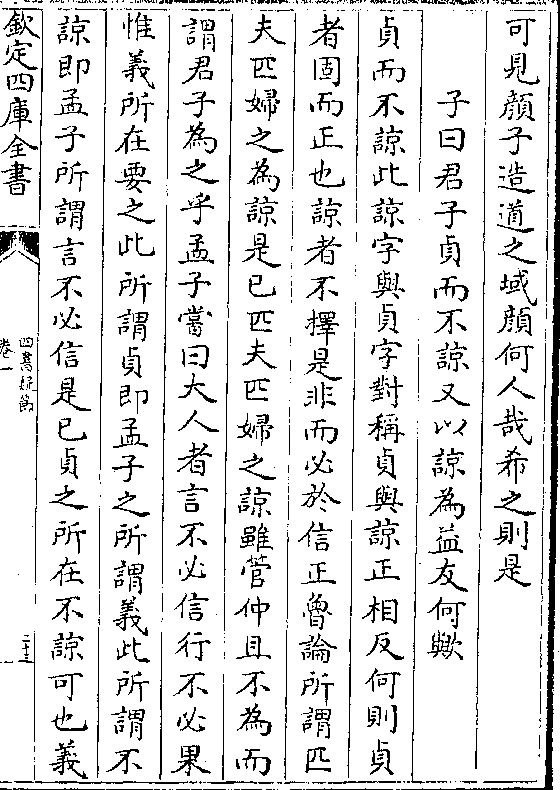 可見顔子造道之域顔何人哉希之則是
子曰君子貞而不諒又以諒為益友何歟
貞而不諒此諒字與貞字對稱貞與諒正相反何則貞
者固而正也諒者不擇是非而必於信正魯論所謂匹
夫匹婦之為諒是已匹夫匹婦之諒雖管仲且不為而
謂君子為之乎孟子嘗曰大人者言不必信行不必果
惟義所在要之此所謂貞即孟子之所謂義此所謂不
諒即孟子所謂言不必信是已貞之所在不諒可也義
欽定四庫全書
四書疑節
卷一
二十三